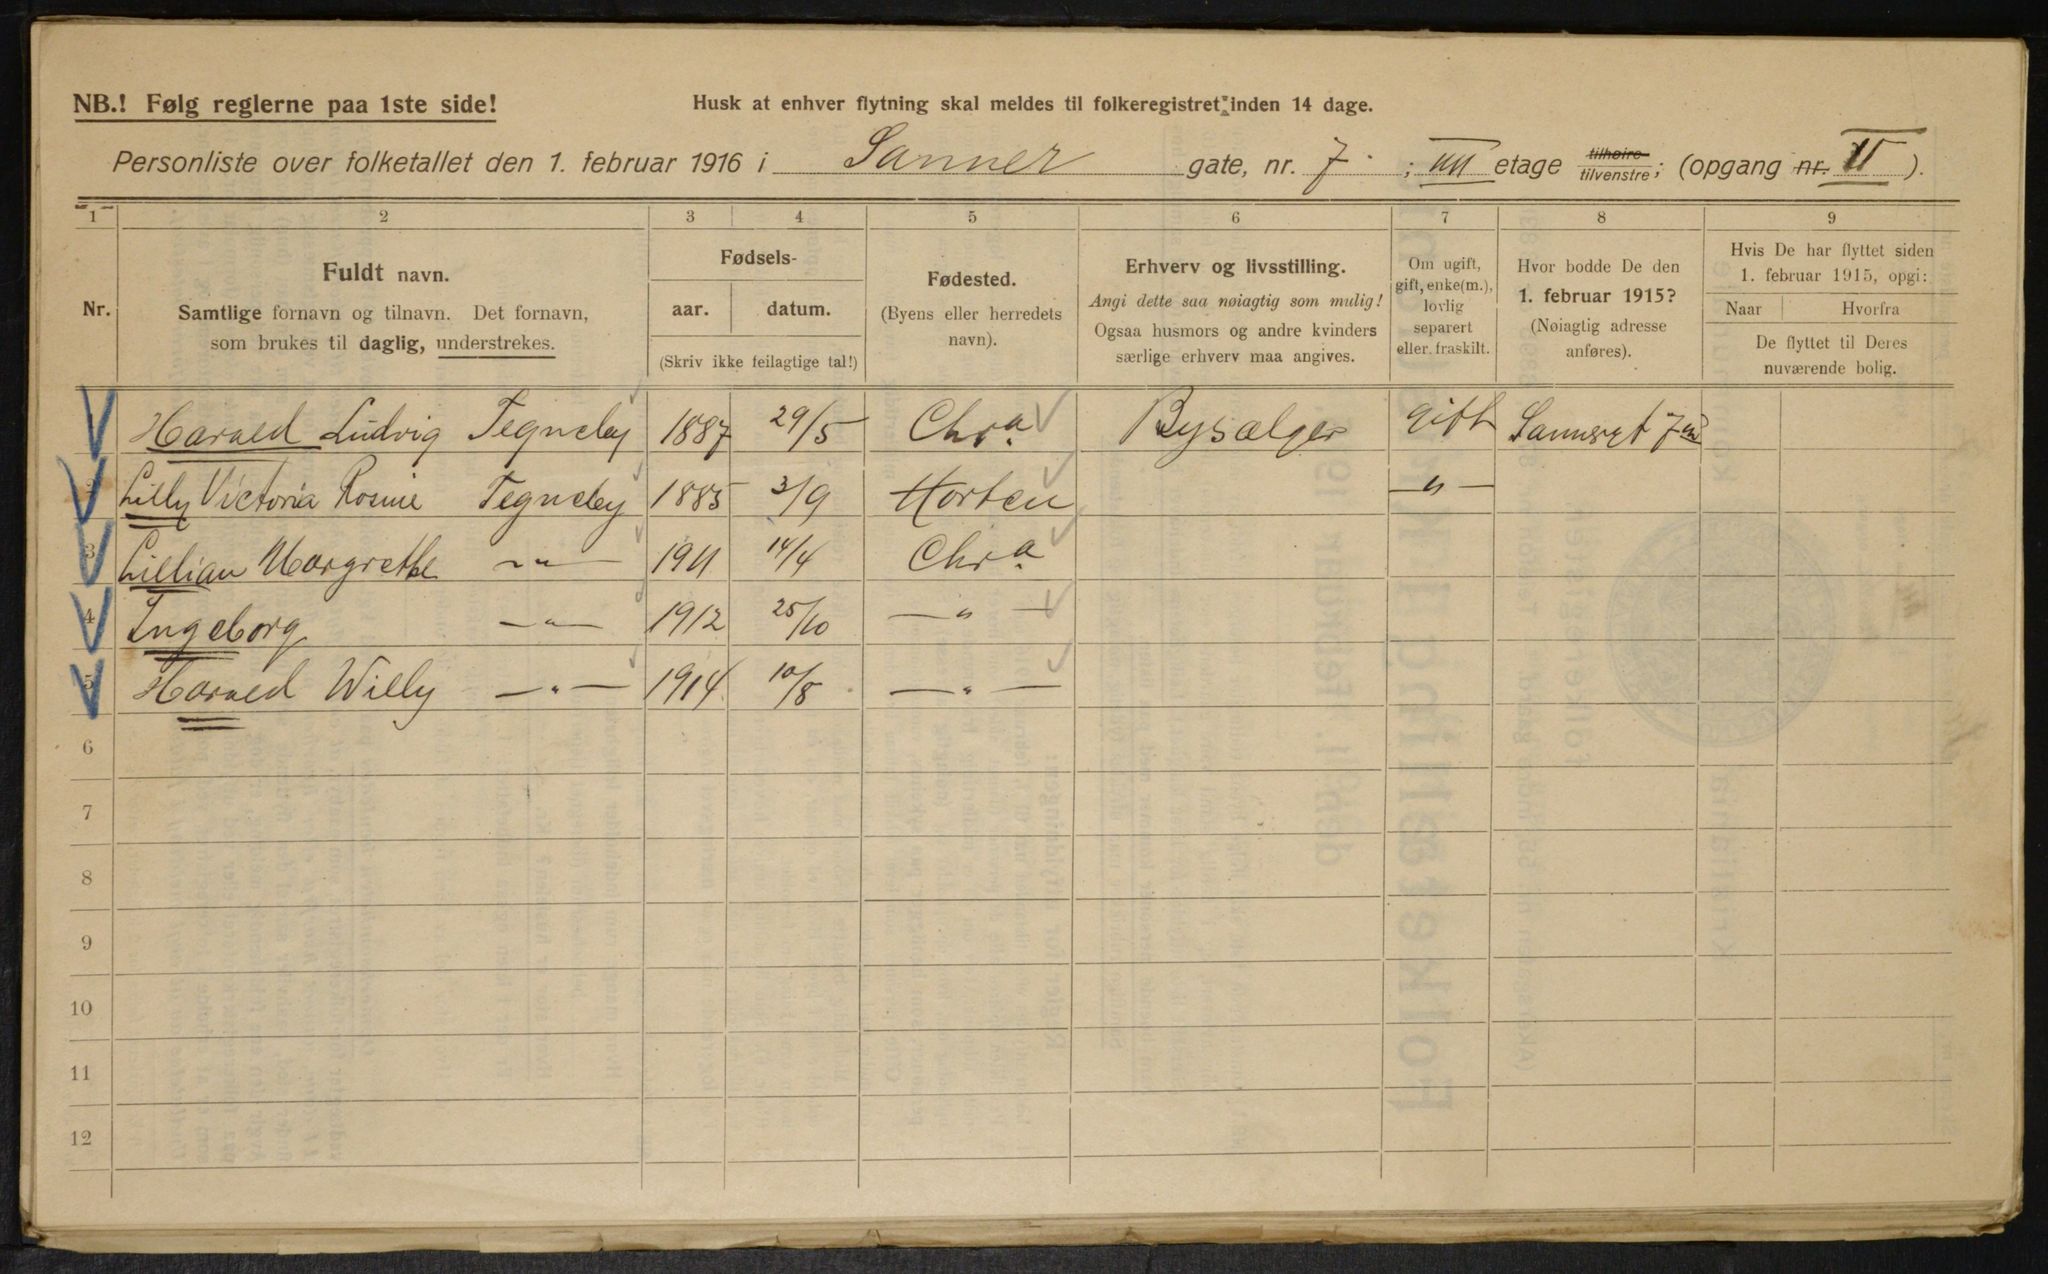 NB.! Følg reglerne paa 1ste side! Husk at enhver flytning skal meldes til folkeregistret inden 14 dage.
Personliste over folketallet den 1. februar 1916 i Sanner gate, nr. 7. ; IIII etage tilhøire tilvenstre; (opgang nr. II ).
1 2 3 4 5 6 7 8 9
Nr.
Fuldt navn.
Samtlige fornavn og tilnavn. Det fornavn,
som brukes til daglig, understrekes.
Fødsels-
aar. datum.
(Skriv ikke feilagtige tal!)
Fødested.
(Byens eller herredets
navn).
Erhverv og livsstilling.
Angi dette saa nøiagtig som mulig!
Ogsaa husmors og andre kvinders
særlige erhverv maa angives.
Om ugift,
gift, enke(m.),
lovlig
separert
eller fraskilt.
Hvor bodde De den
1. februar 1915?
(Nøiagtig adresse
anføres).
Hvis De har flyttet siden
1. februar 1915, opgi:
Naar Hvorfra
De flyttet til Deres
nuværende bolig.
1 Harald Ludvig Tegneby 1887 29/5 Chra. Bysælger gift Sannergt 7
2 Lilly Victoria Rosine Tegneby 1885 3/9 Horten —"—
3 Lillian Margrethe —"— 1911 14/4 Chra.
4 Ingeborg —"— 1912 25/10 —"—
5 Harald Willy —"— 1914 10/8 —"—
6
7
8
9
10
11
12